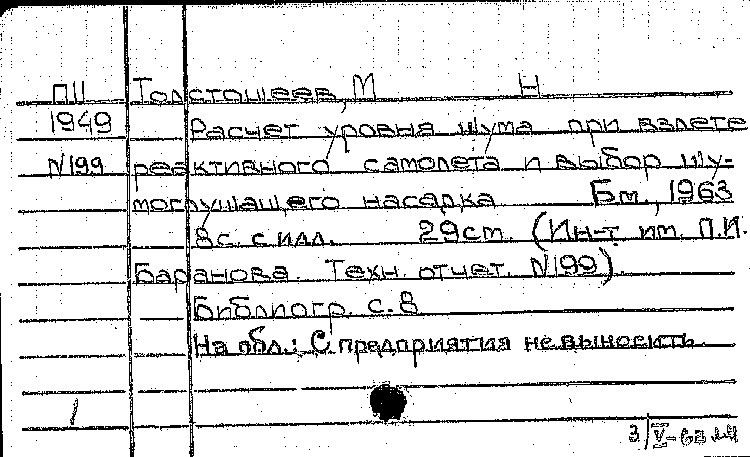 ПII Толстошеев, М Н
1949 Расчет уровня шума при взлете
N199 реактивного самолета и выбор шу-
моглушащего насадка Б.м., 1963
8с. с илл. 29см. (Ин-т им. П.И.
Баранова. Техн. отчет. N199).
Библиогр. с. 8
На обл.: С предприятия не выносить.
1
3/V-63